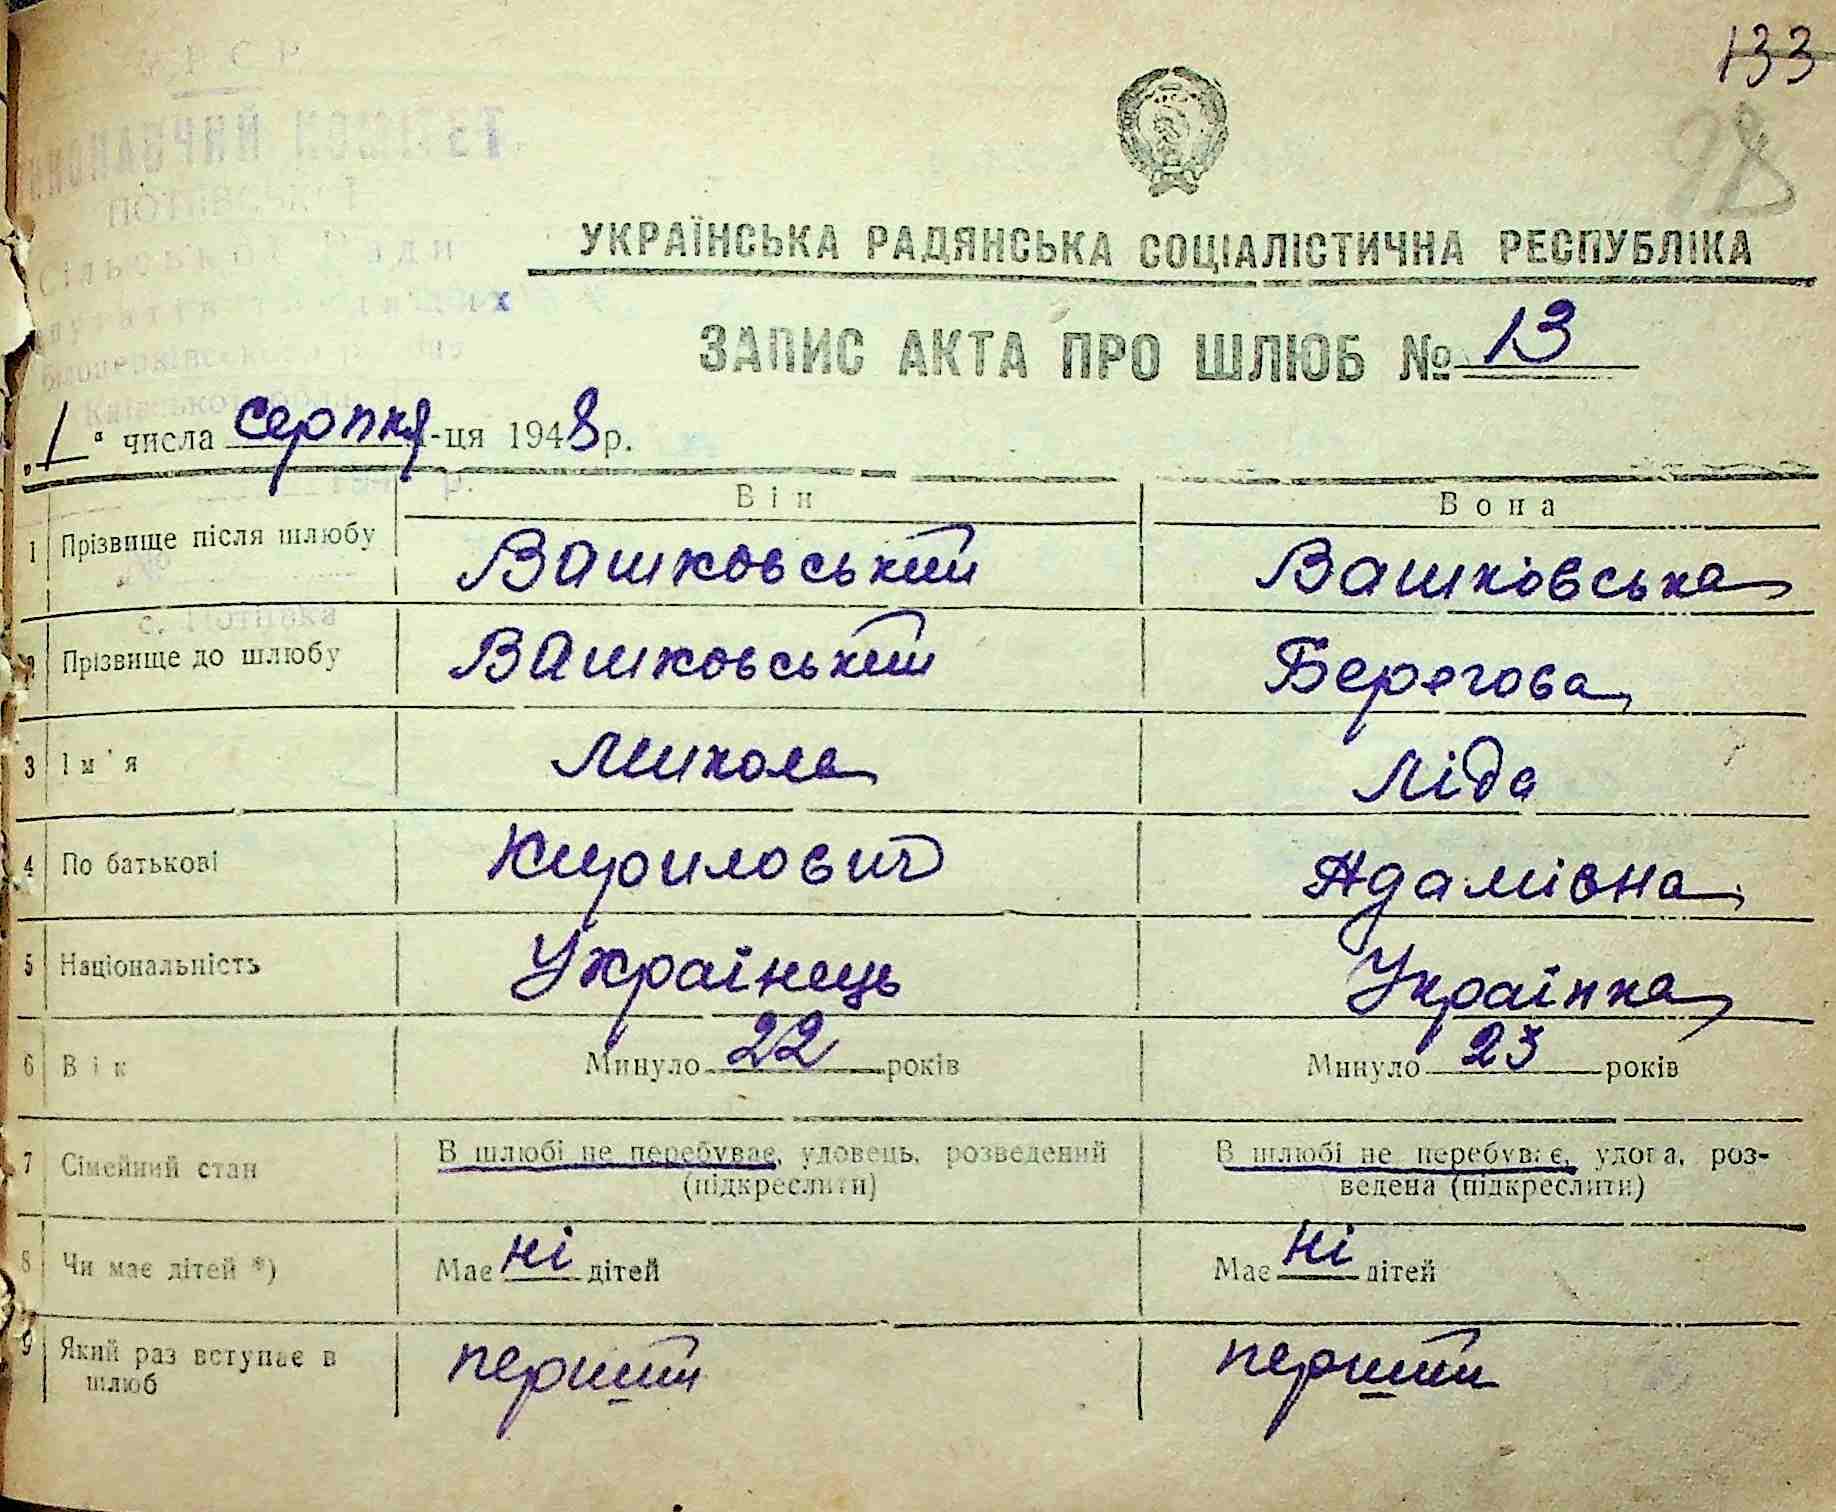 133
98
УКРАЇНСЬКА РАДЯНСЬКА СОЦІАЛІСТИЧНА РЕСПУБЛІКА
ЗАПИС АКТА ПРО ШЛЮБ № 13
„1“ числа серпня-ця 1948 р.
Він Вона
1 Прізвище після шлюбу Вашковський Вашковська
2 Прізвище до шлюбу Вашковський Берегова
3 Ім'я Микола Ліда
4 По батькові Кирилович Адамівна
5 Національність Украінець Украінка
6 Вік Минуло 22 років Минуло 23 років
7 Сімейний стан В шлюбі не перебуває, удовець, розведений В шлюбі не перебуває, удова, роз-
(підкреслити) ведена (підкреслити)
8 Чи має дітей *) Має ні дітей Має ні дітей
9 Який раз вступає в перший перший
шлюб